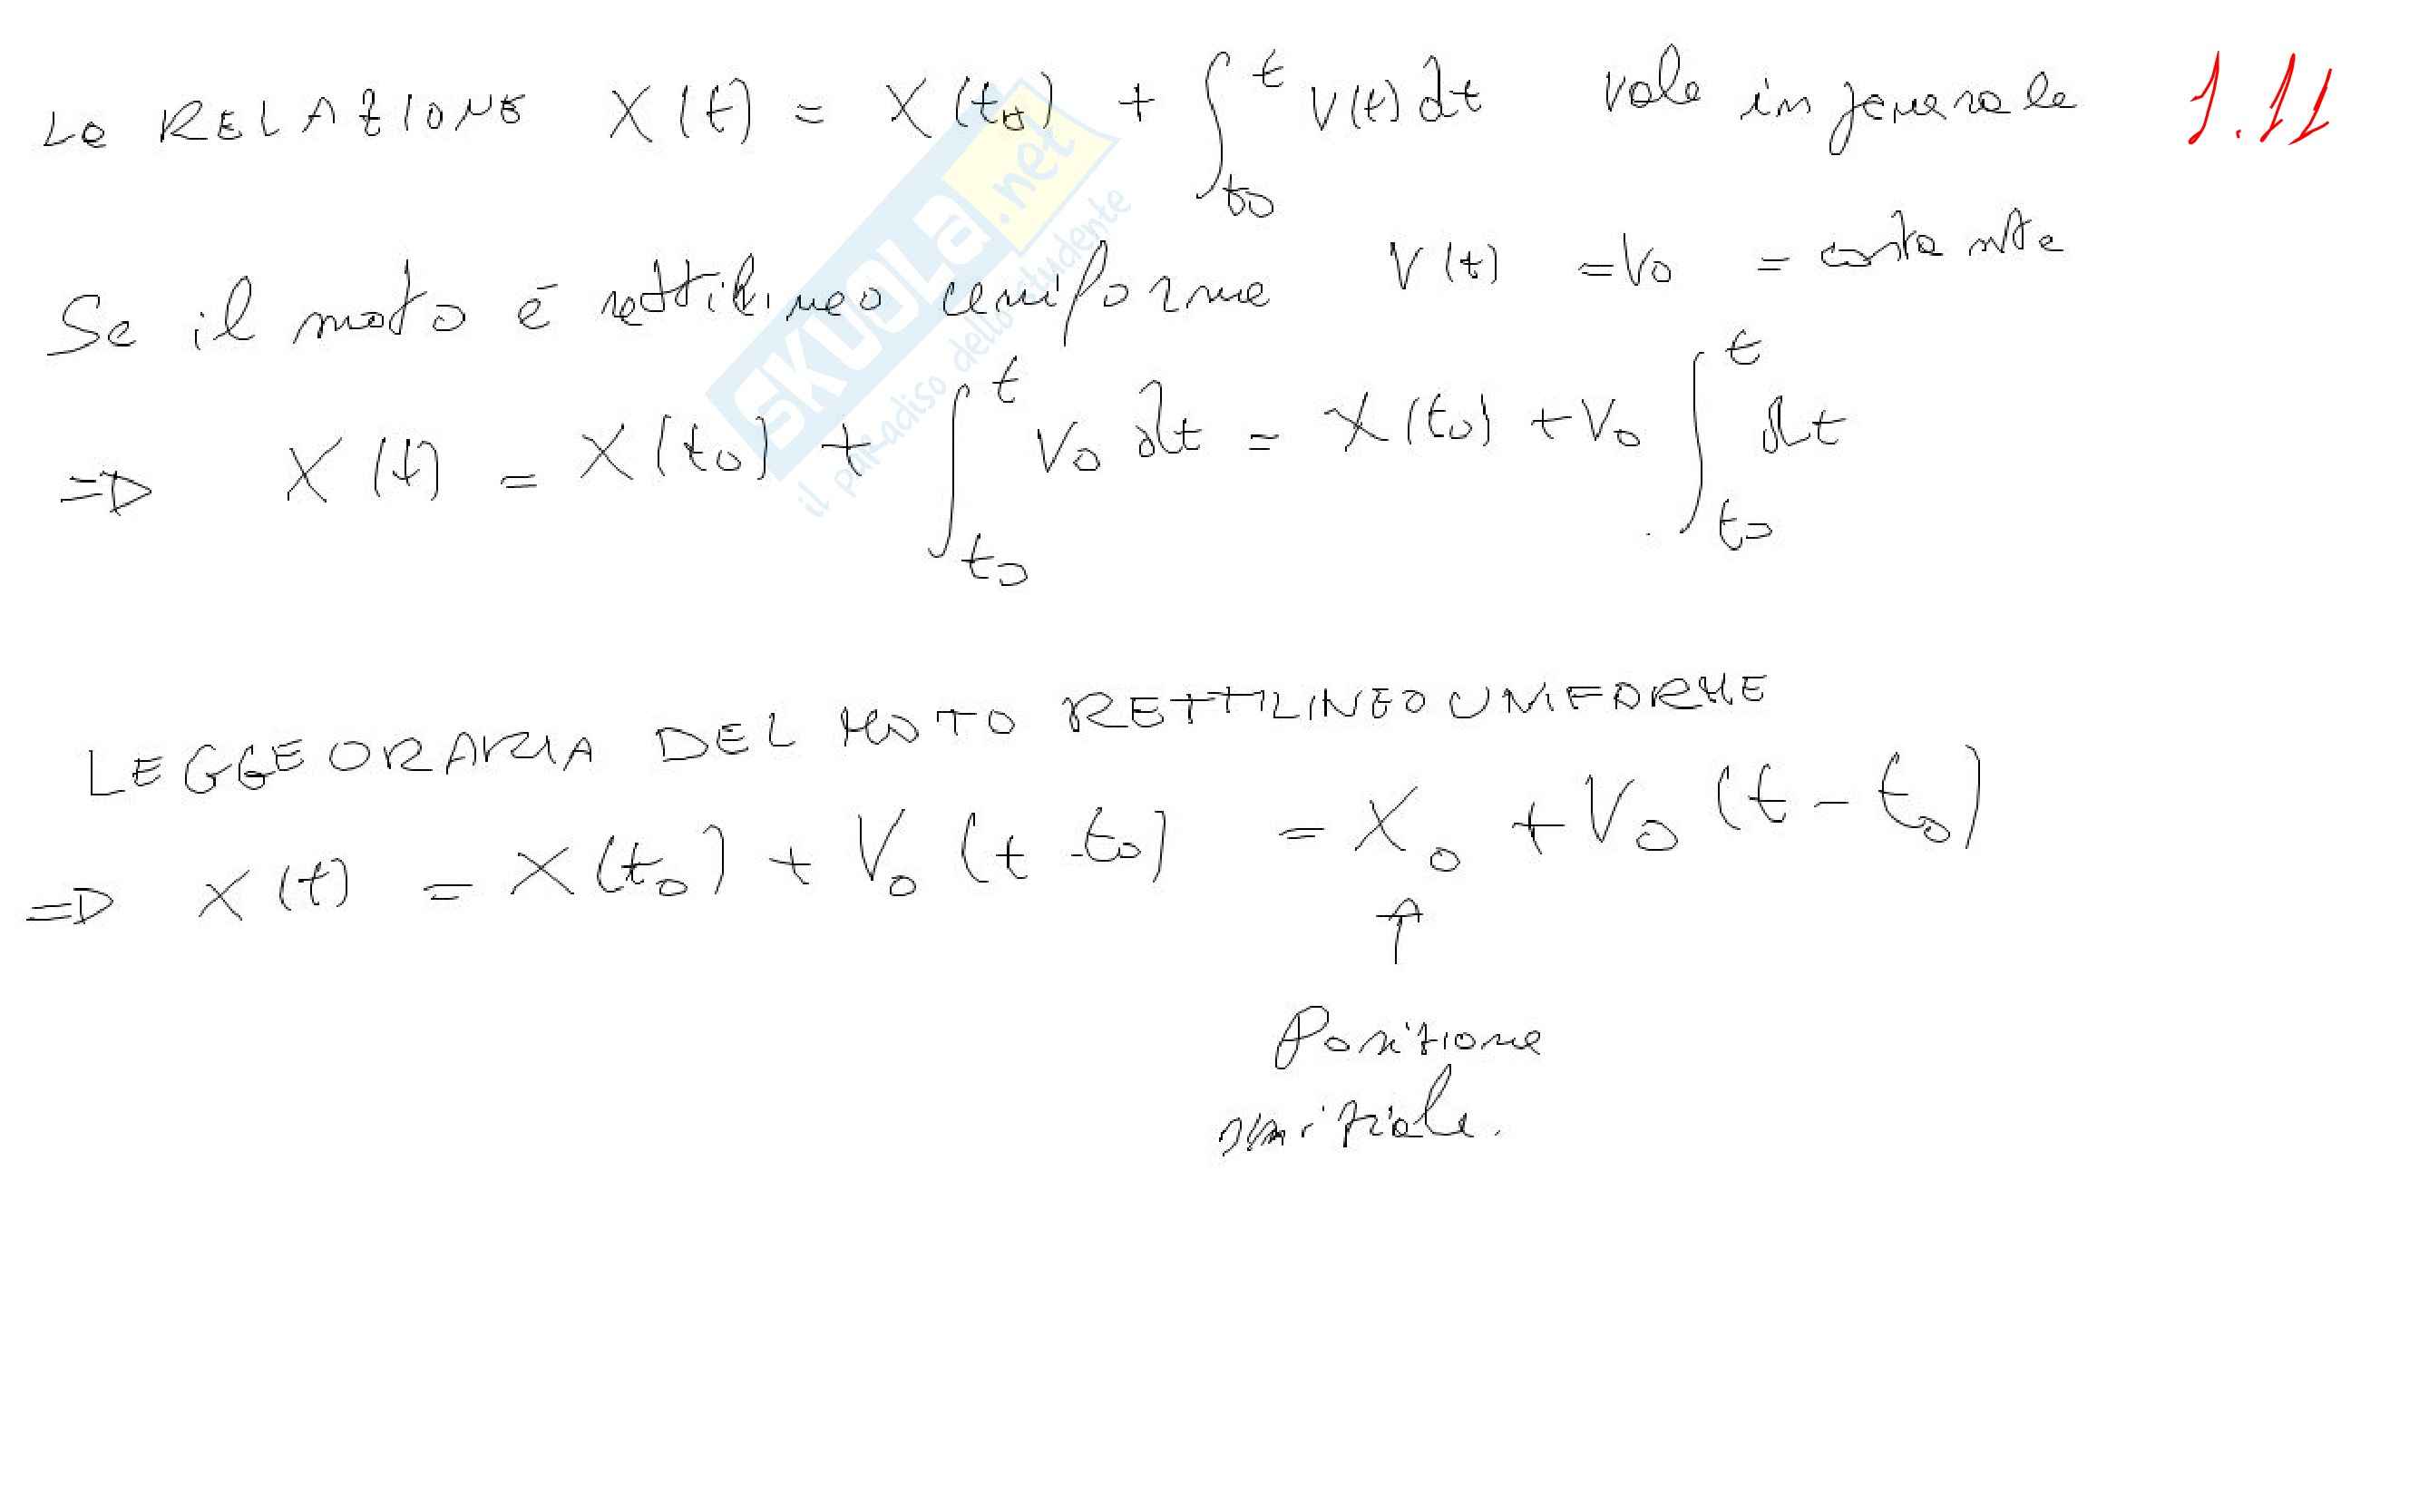 La RELAZIONE X(t) = X(t₀) + ∫_{t₀}^{t} V(t) dt vale in generale 1.11
Se il moto è rettilineo uniforme V(t) = V₀ = costante
=> X(t) = X(t₀) + ∫_{t₀}^{t} V₀ dt = X(t₀) + V₀ ∫_{t₀}^{t} dt
LEGGE ORARIA DEL MOTO RETTILINEO UNIFORME
=> X(t) = X(t₀) + V₀ (t - t₀) = X₀ + V₀ (t - t₀)
↑
Posizione
iniziale.
SKUOLA.net
il paradiso dello studente